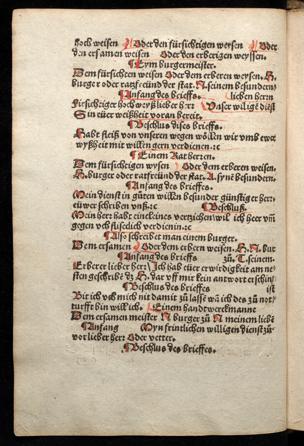 hoch weisen Oder den fürsichtigen weysen Oder
den ersamen weisen Oder den erberigen weyssen.
¶ Eym burgermeister.
Dem fürsichten weisen Oder dem erberen weysen. N.
burger oder ratzfründ der stat. N. seinem besundern
¶ Anfang des brieffs. lieben hern
Fürsichtiger hochweyß lieber herr Unser willige dienst
Sin üwer weißheit voran bereit.
¶ Beschluß dises brieffs.
Habt fleiß von unseren wegen wöllen wir umb uwer
wyßheit mit willen gern verdienen.⁊c
¶ Einem Ratherren.
Dem fürsichtigen wysen Oder dem erberen weisen.
N. burger oder ratzfründ der stat. A. syne besundern.
¶ Anfang des brieffes.
Mein dienst in güten willen besunder günstiger herr
euwer schreiben
Mein herr habt ein kleines vertziehen wil ich heer um
gegen uch fliselich verdienen.⁊c
¶ Also schreibet man einem burger.
Dem ersamen Oder dem erbern weisen. H. N. bur
¶ Anfang des brieffs zü. T. seinem.
Erberer lieber herr Ich hab üwer erwirdigkeit am ne
sten geschribe dz uff mir kein antwort erschin
¶ Beschluß des brieffs ist
Bit ich uch mich nit damit zü lasse wa ich des zü not
turfft bin willich. ¶ Einem handtwerckmanne
Dem ersamen meister N burger zü N meinem liebe
¶ Anfang Myn früntlichen willigen dienst zü
vor lieber herr Oder vetter.
¶ Beschluß des brieffs.